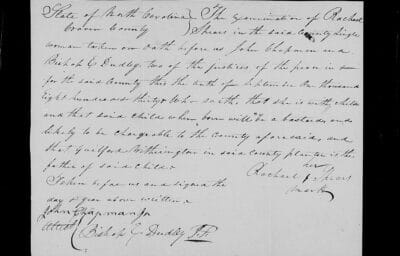 State of North Carolina } The Examination of Rachael
Craven County } Spears in the said County single
woman taken on Oath before us John Chapman and
Bishop G Dudley, two of the justices of the peace in &
for the said County this the tenth of September One thousand
Eight hundred & thirty Who saith, that she is with child
and that said child when born will be a bastard and
likely to be chargeable to the County aforesaid, and
that Guilford Witherington in said county planter is the
father of said child
Taken before us and signed the
day & year above written
her
Rachael Spears
mark
John Chapman Jr
Bishop G Dudley J.P.